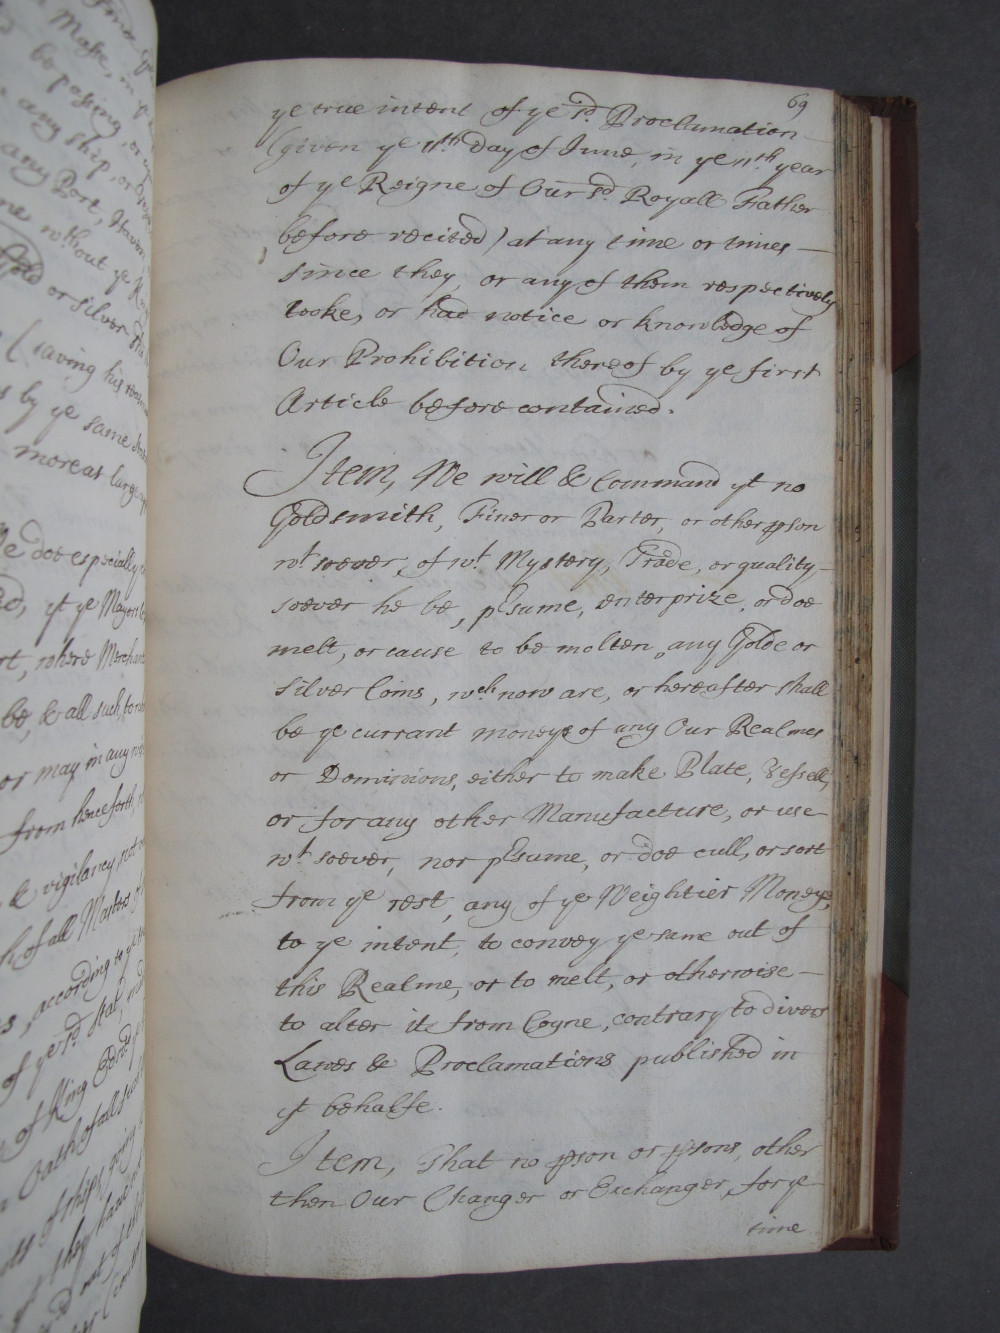 69
ye true intent of ye sd Proclamation
(given ye 11th day of June, in ye 11th year
of ye Reigne of Our sd Royall Father
before recited) at any time or times
since they, or any of them respectively
tooke, or had notice or knowledge of
Our Prohibition thereof by ye first
Article before contained.
Item, We will & Command yt no
Goldsmith, Finer or Parter, or other pson
wt soever, of wt Mystery, Trade, or quality
soever he be, psume, enterprize, or doe
melt, or cause to be molten, any Golde or
Silver Coins, wch now are, or hereafter shall
be ye currant moneys of any Our Realmes
or Dominions, either to make Plate, Vessell,
or for any other Manufacture, or use
wt soever, nor psume, or doe cull, or sort
from ye rest, any of ye Weightier Moneys,
to ye intent, to convey ye same out of
this Realme, or to melt, or otherwise
to alter it from Coyne, contrary to divers
Lawes & Proclamations published in
yt behalfe.
Item, That no pson or psons, other
then Our Changer or Exchanger, for ye
time
any ship, or
any Port, Haven
wthout ye
Gold or silver
(saving his
by ye same
more at large
We doe especially
yt ye Mayor
where Merchants
be, & all such
or may in any
from henceforth
& vigilancy, not
of all Masters
according to ye
of ye sd Stat
of King Edwd
Oath of all such
of ships
they have
out of